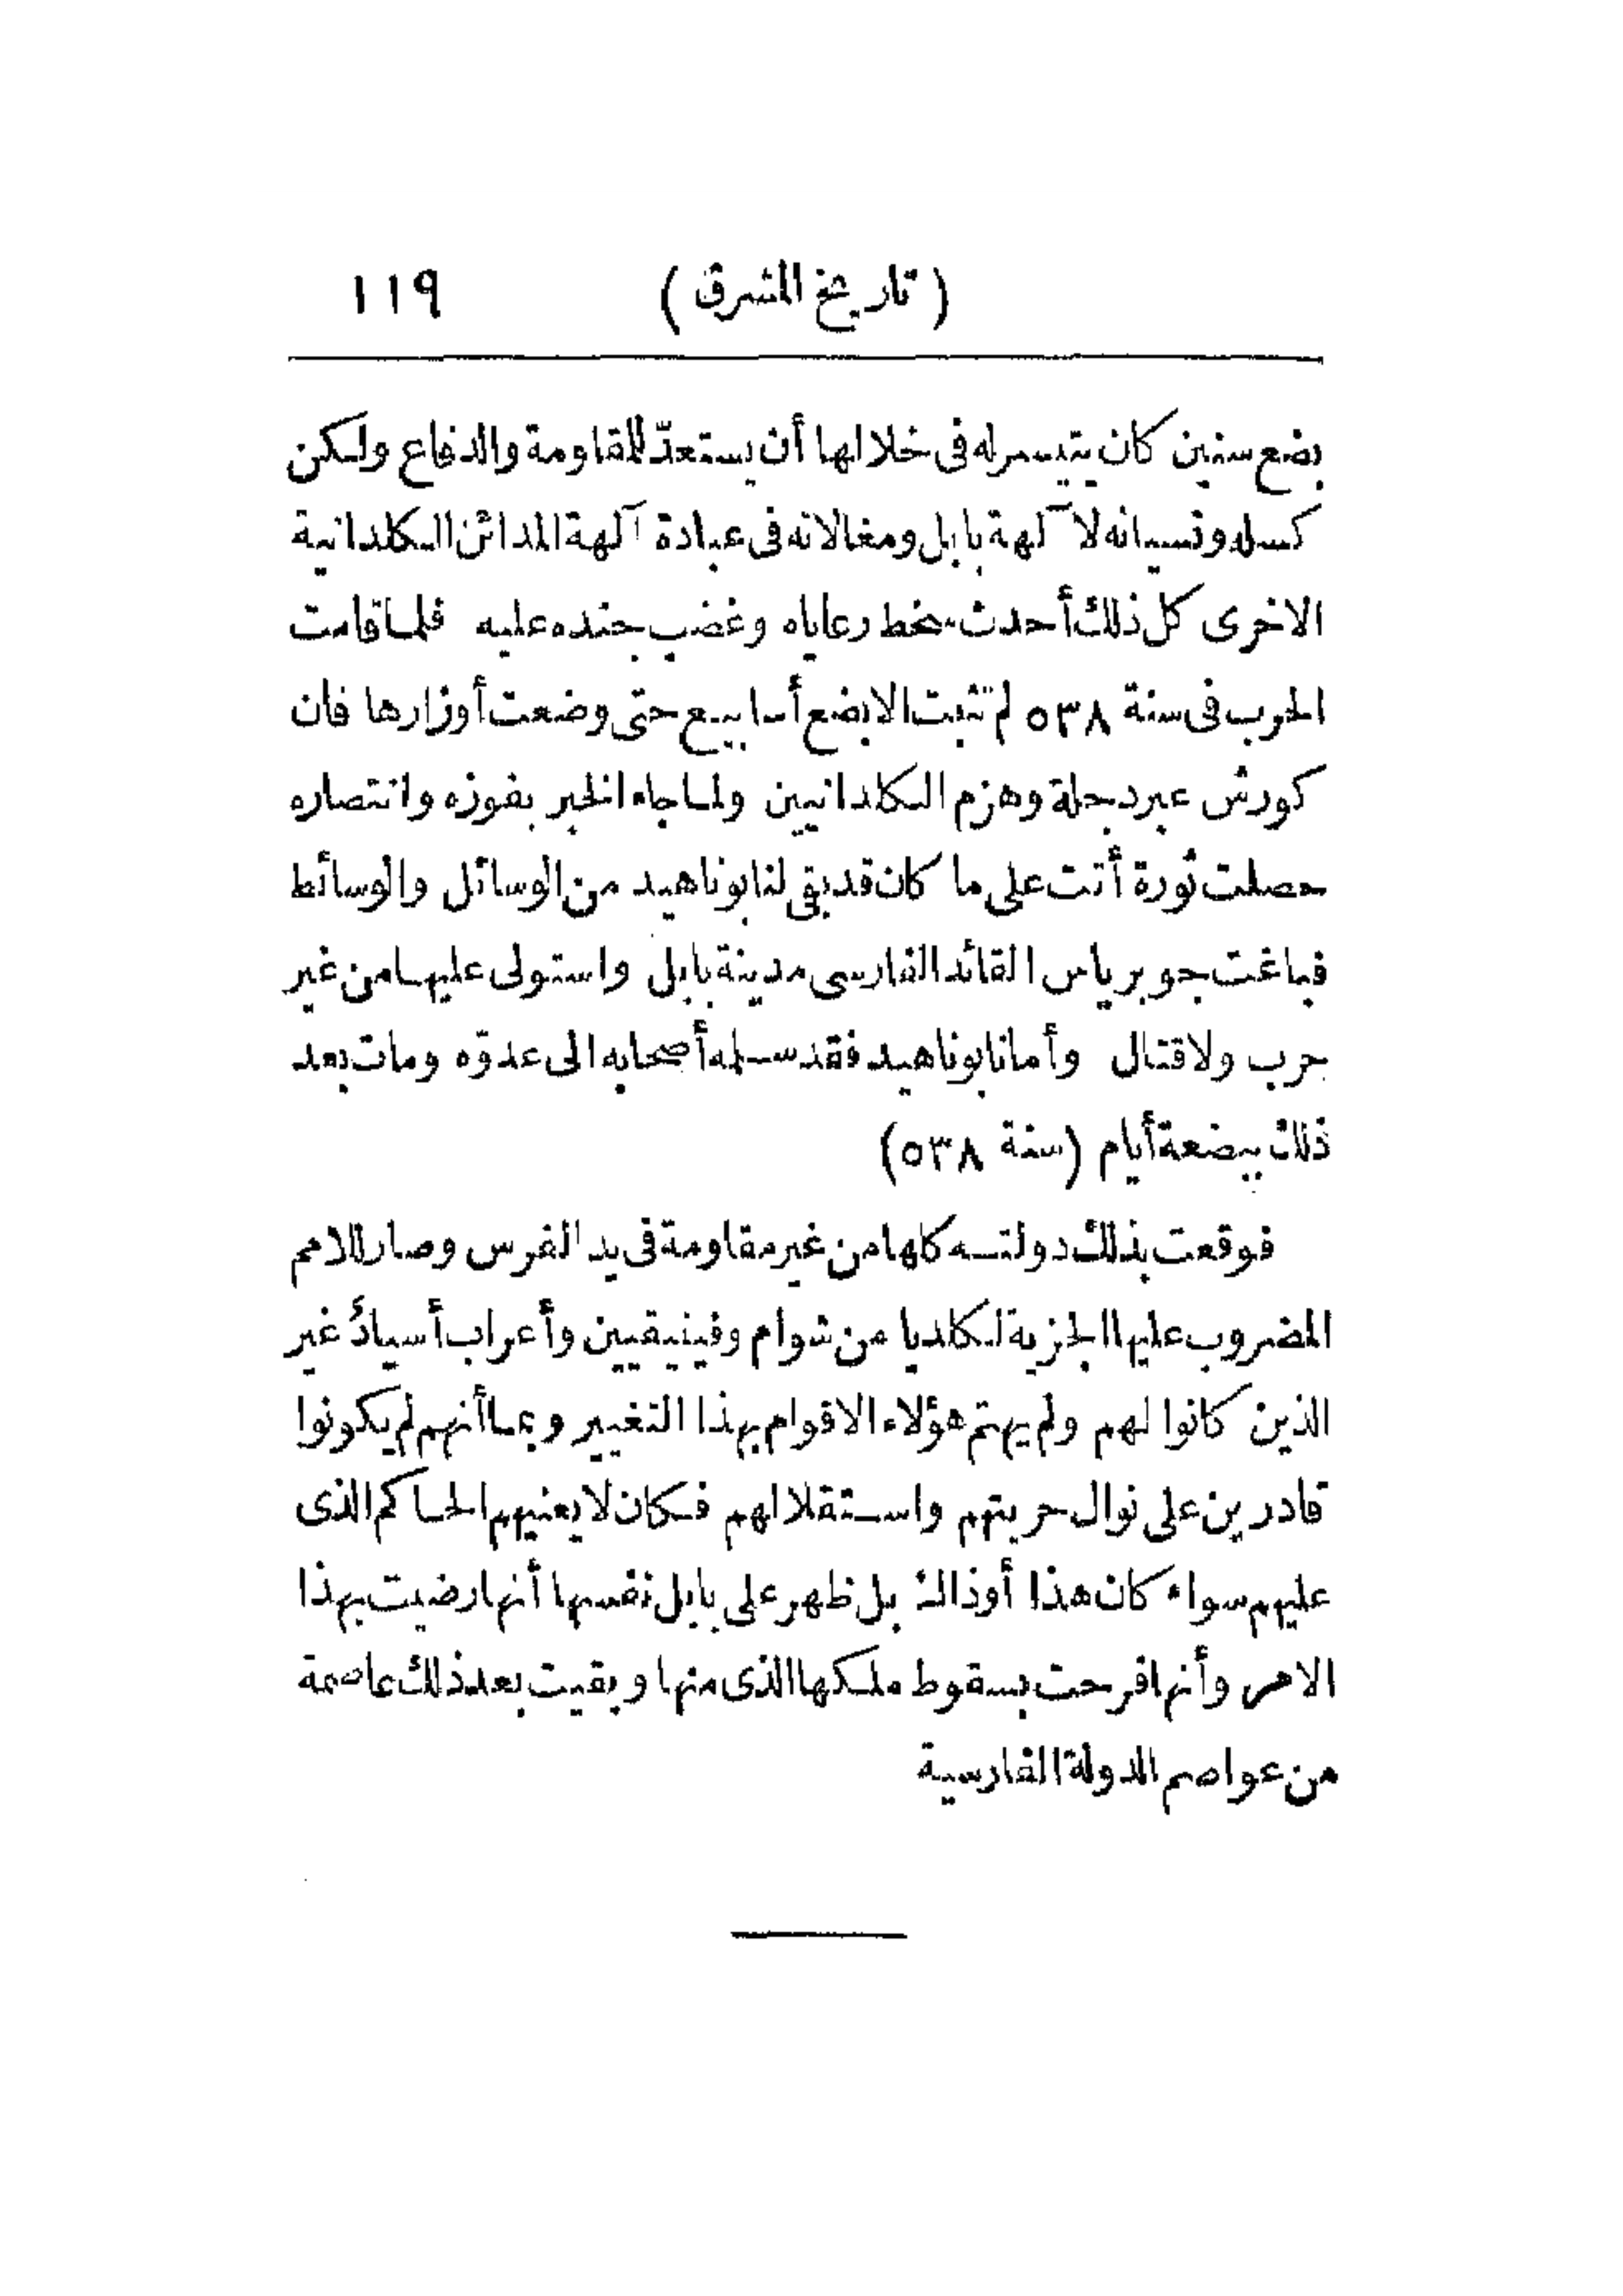 (تاريخ المشرق) ١١٩
بضع سنين كان يتيسر له فى خلالها أن يستعدّ للمقاومة والدفاع ولكن
كسله ونسيانه لآلهة بابل ومغالاته فى عبادة آلهة المدائن الكلدانية
الاخرى كل ذلك أحدث سخط رعاياه وغضب جنده عليه فلما قامت
الحرب فى سنة ٥٣٨ لم تثبت الا بضع أسابيع حتى وضعت أوزارها فان
كورش عبر دجلة وهزم الكلدانيين ولما جاء الخبر بفوزه وانتصاره
حصلت ثورة أتت على ما كان قد بقى لنابوناهيد من الوسائل والوسائط
فباغت جوبرياس القائد الفارسى مدينة بابل واستولى عليها من غير
حرب ولا قتال وأما نابوناهيد فقد سلمه أصحابه الى عدوّه ومات بعد
ذلك ببضعة أيام (سنة ٥٣٨)
فوقعت بذلك دولته كلها من غير مقاومة فى يد الفرس وصار للامم
المضروب عليها الجزية لكلديا من شوام وفينيقيين وأعراب أسيادُ غير
الذين كانوا لهم ولم يهتم هؤلاء الاقوام بهذا التغيير وبما أنهم لم يكونوا
قادرين على نوال حريتهم واستقلالهم فكان لا يعنيهم الحاكم الذى
عليهم سواء كان هذا أو ذاك بل ظهر على بابل نفسها أنها رضيت بهذا
الامر وأنها فرحت بسقوط ملكها الذى منها وبقيت بعد ذلك عاصمة
من عواصم الدولة الفارسية